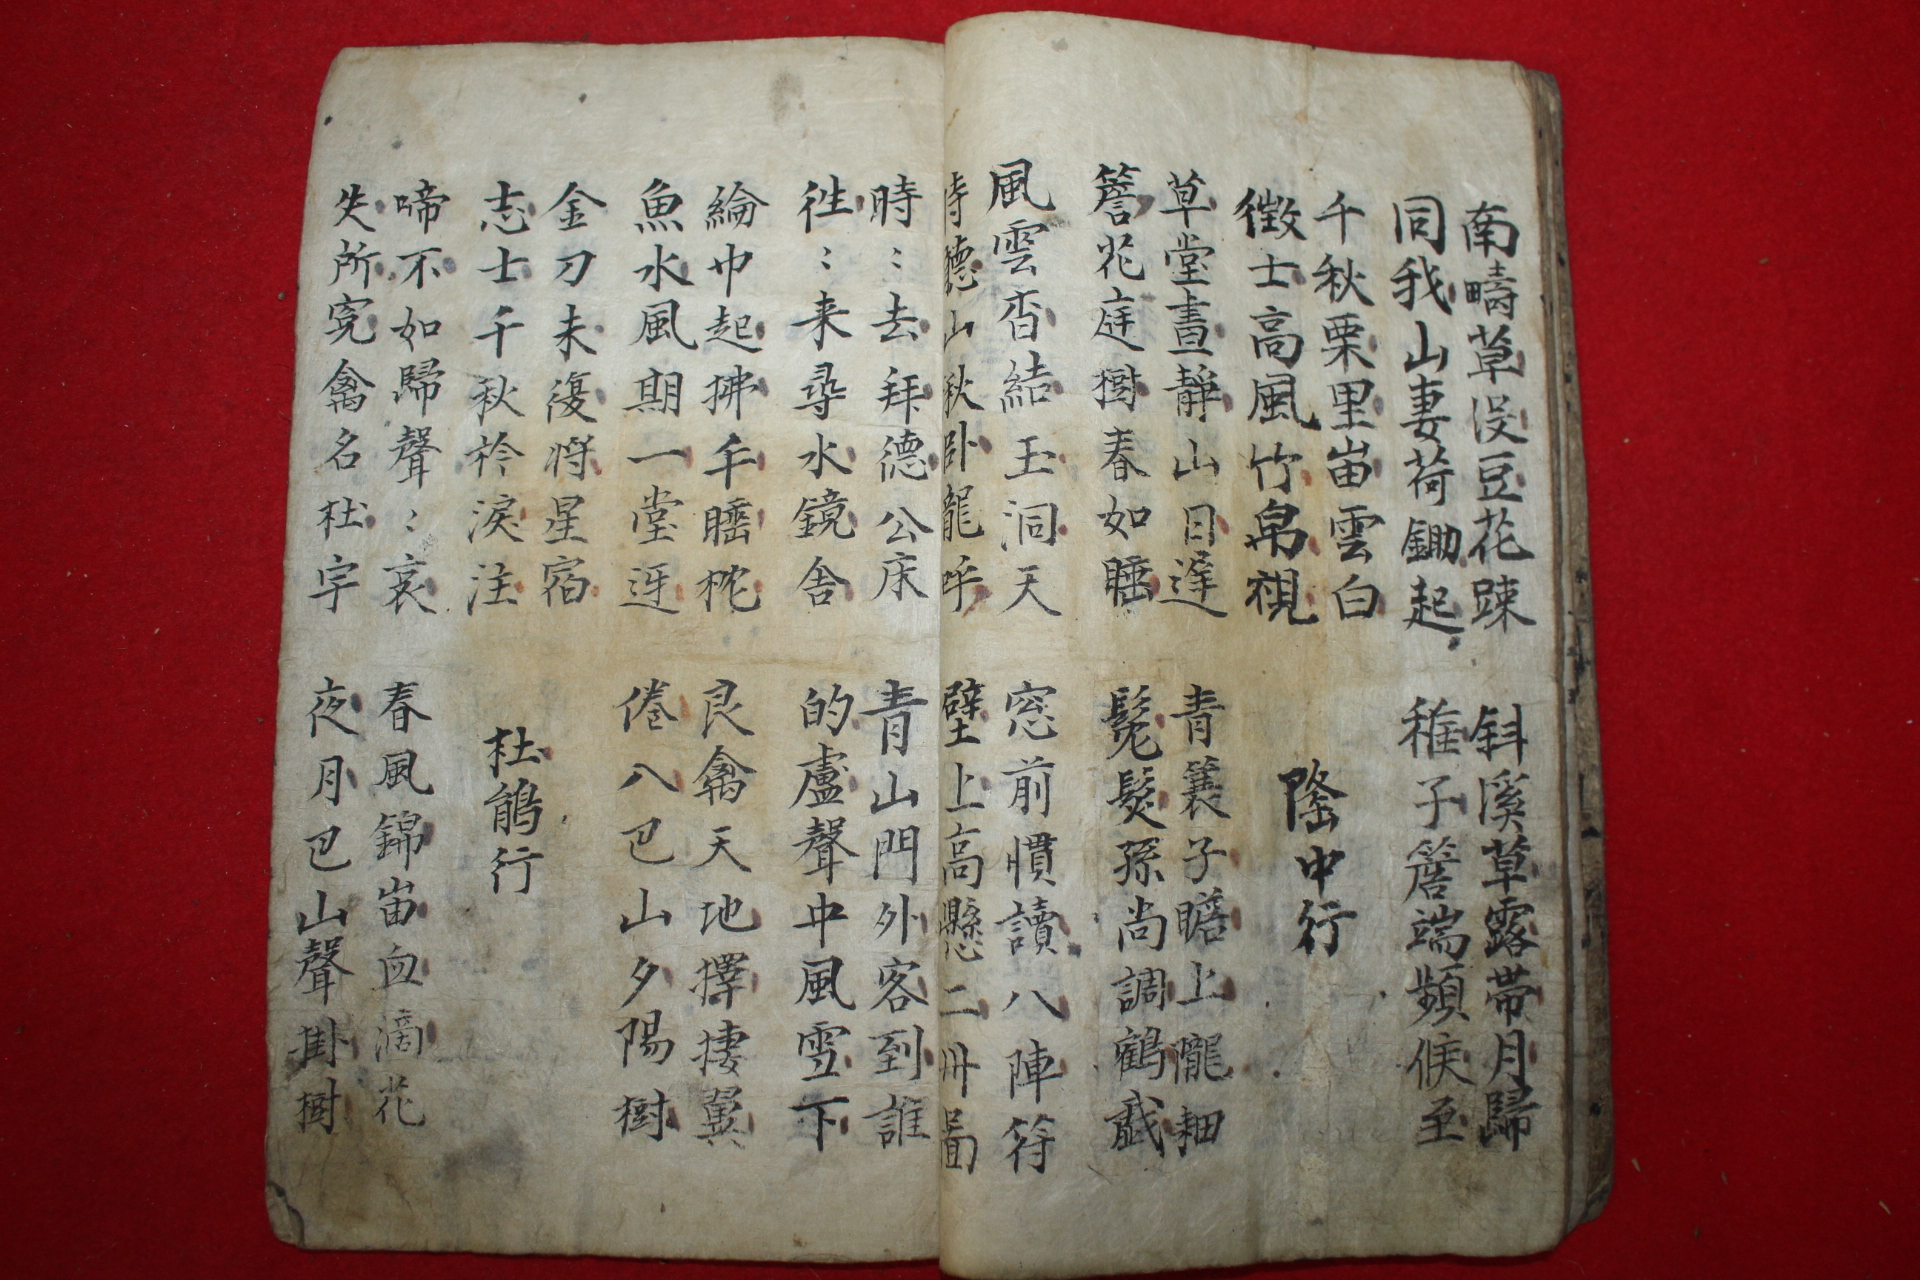 南疇草没豆花踈
同我山妻荷鋤起
斜溪草露帯月歸
稚子簷端頻候至
千秋栗里畄雲白
徵士高風竹帛視
隆中行
草堂晝静山日遅
簷花庭樹春如睡
青蓑子瞻上隴細
髮孫尚調鶴戱
風雲杳結玉洞天
時聴山秋卧龍呼
窓前慣讀八陣符
壁上高懸二卅圖
時〻去拜德公床
徃〻来尋水鏡舍
青山門外客到誰
的盧聲中風雪下
綸巾起拂午睡枕
魚水風期一堂迓
良禽天地擇捿翼
倦入巴山夕陽樹
金刀未復将星宿
志士千秋衿淚注
杜鵑行
啼不如歸聲〻哀
失所寃禽名杜宇
春風錦畄血滴花
夜月巴山聲掛樹